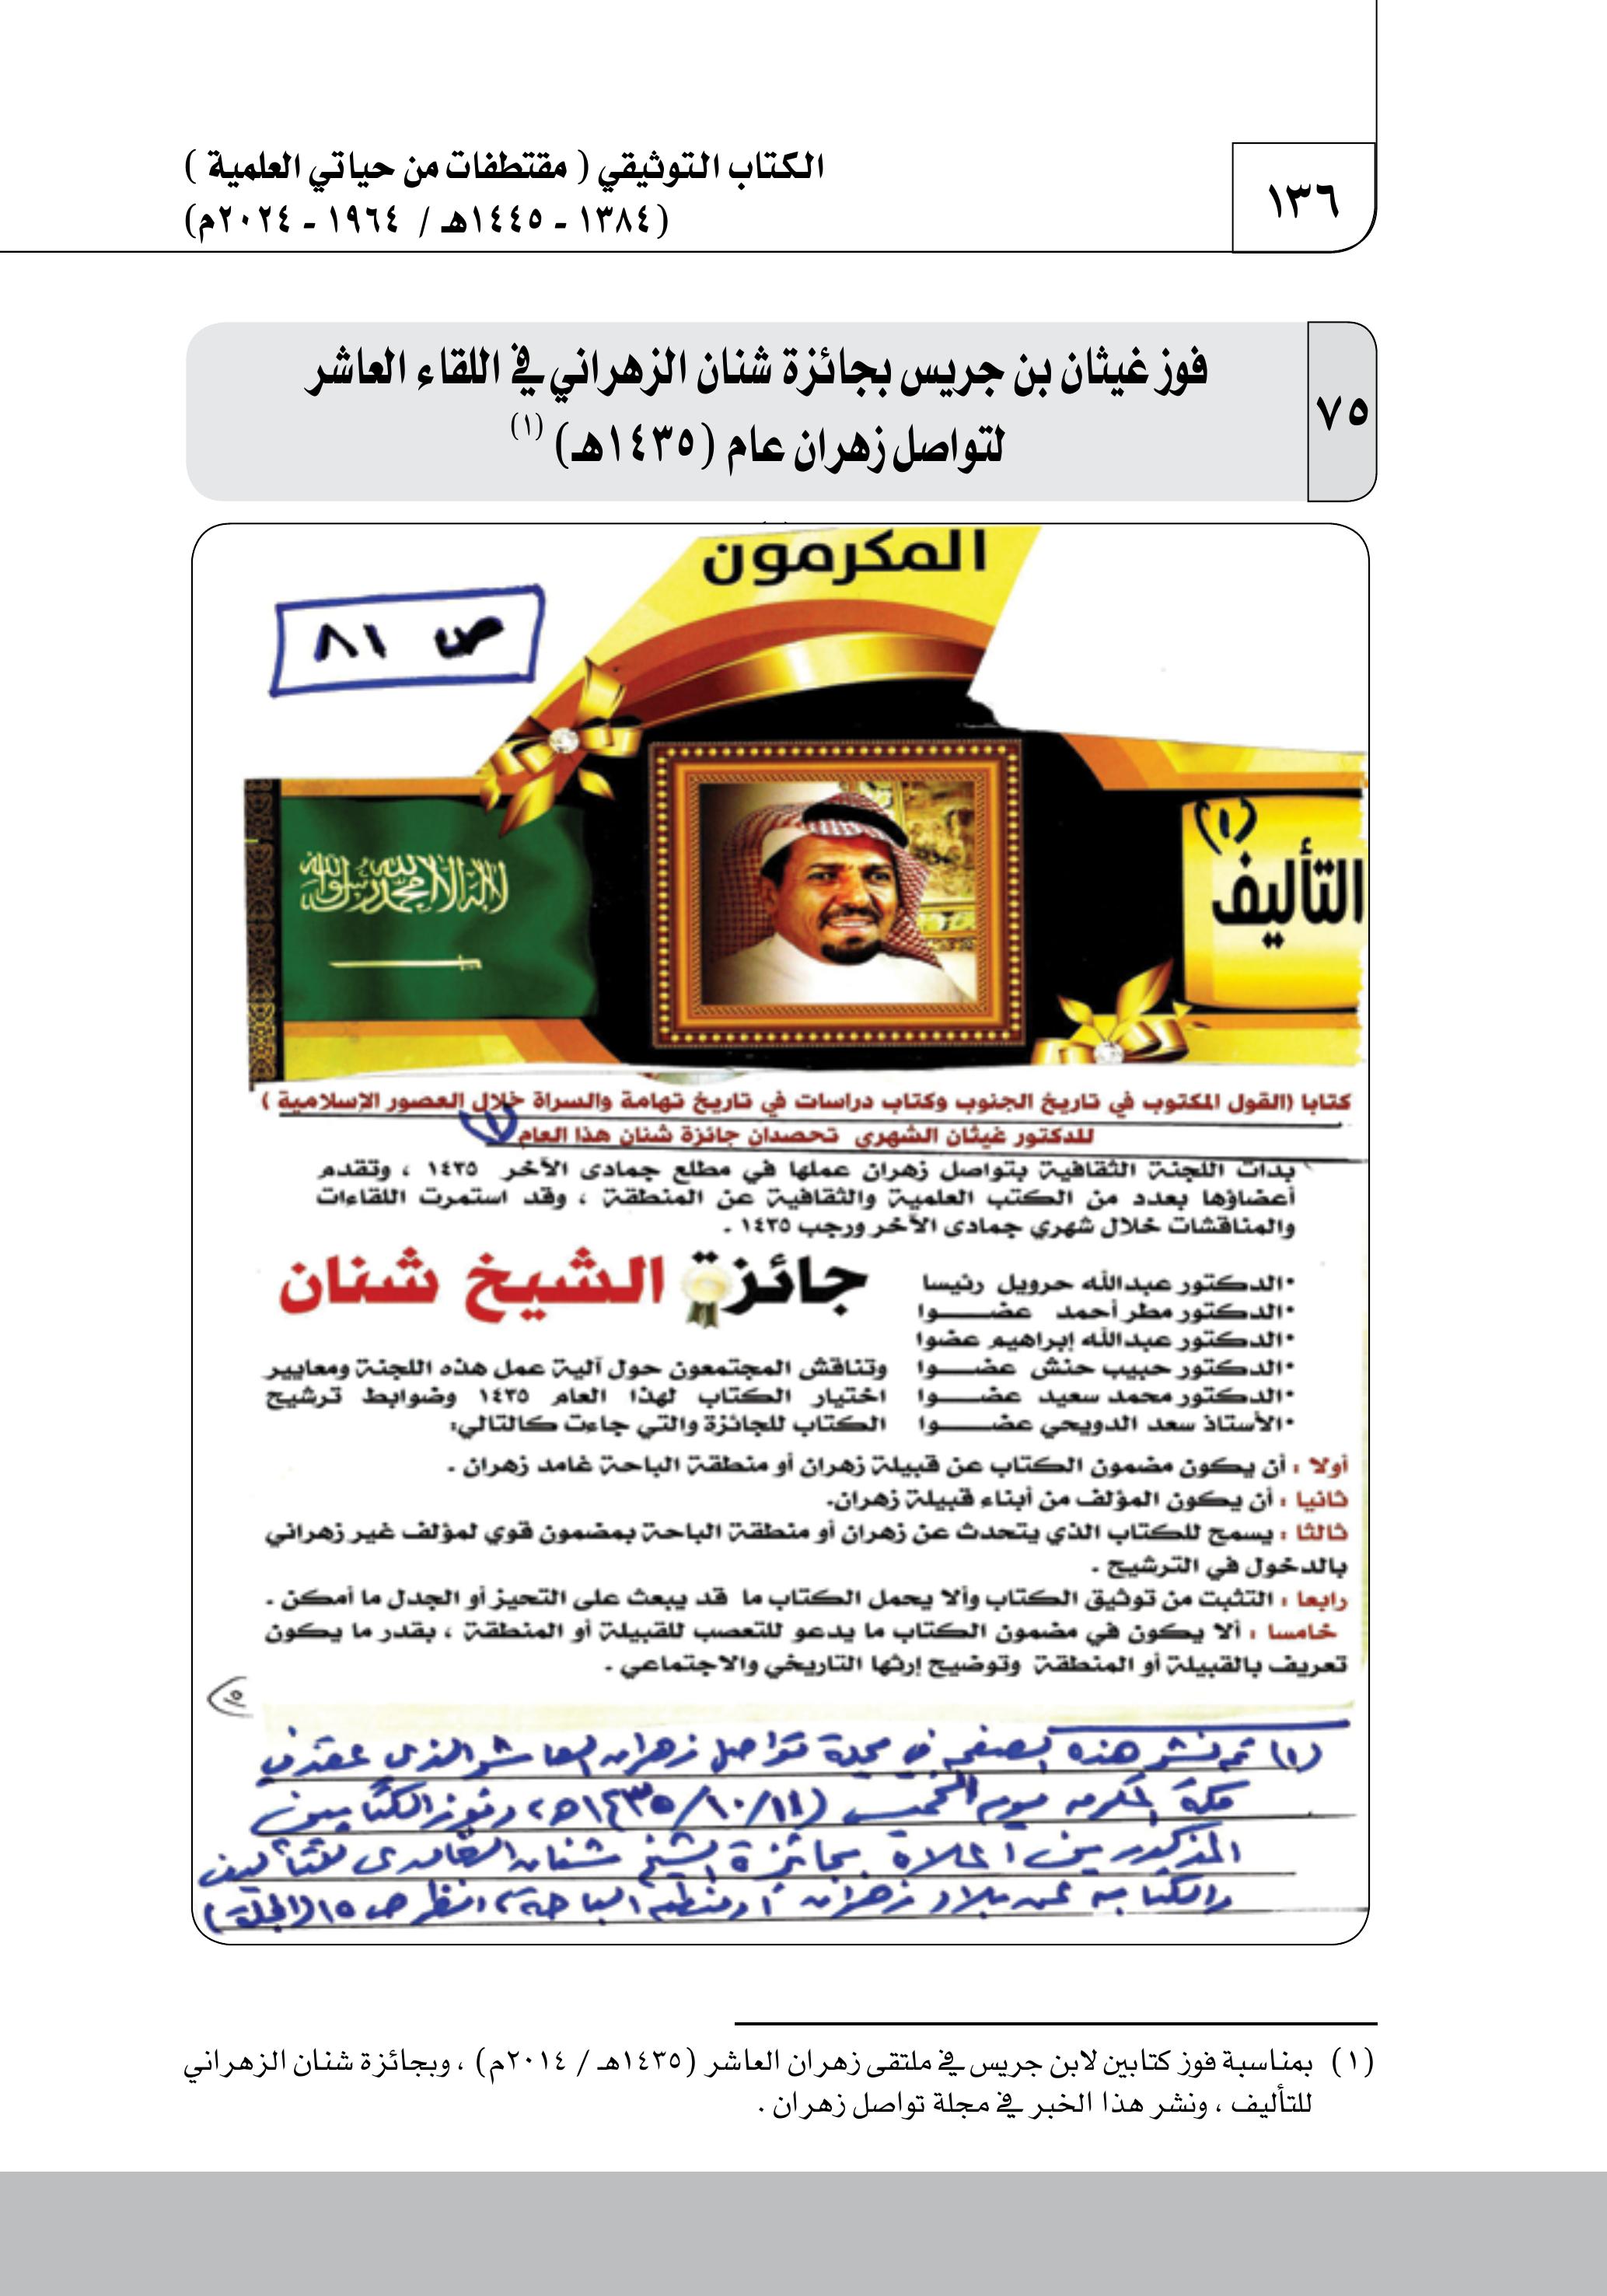 ١٣٦
الكتاب التوثيقي ( مقتطفات من حياتي العلمية )
(١٣٨٤ - ١٤٤٥هـ / ١٩٦٤ - ٢٠٢٤م)
٧٥
فوز غيثان بن جريس بجائزة شنان الزهراني في اللقاء العاشر
لتواصل زهران عام (١٤٣٥هـ) (١)
المكرمون
ص ٨١
لا إله إلا الله محمد رسول الله
(١)
التأليف
كتابا (القول المكتوب في تاريخ الجنوب وكتاب دراسات في تاريخ تهامة والسراة خلال العصور الإسلامية )
للدكتور غيثان الشهري تحصدان جائزة شنان هذا العام
بدات اللجنة الثقافية بتواصل زهران عملها في مطلع جمادى الآخر ١٤٣٥ ، وتقدم
أعضاؤها بعدد من الكتب العلمية والثقافية عن المنطقة ، وقد استمرت اللقاءات
والمناقشات خلال شهري جمادى الآخر ورجب ١٤٣٥ .
جائزة الشيخ شنان
•الدكتور عبدالله حرويل رئيسا
•الدكتور مطر أحمد عضـــــوا
•الدكتور عبدالله إبراهيم عضوا
•الدكتور حبيب حنش عضـــــوا
•الدكتور محمد سعيد عضـــــوا
•الأستاذ سعد الدويحي عضـــــوا
وتناقش المجتمعون حول آلية عمل هذه اللجنة ومعايير
اختيار الكتاب لهذا العام ١٤٣٥ وضوابط ترشيح
الكتاب للجائزة والتي جاءت كالتالي:
أولا : أن يكون مضمون الكتاب عن قبيلة زهران أو منطقة الباحة غامد زهران .
ثانيا : أن يكون المؤلف من أبناء قبيلة زهران.
ثالثا : يسمح للكتاب الذي يتحدث عن زهران أو منطقة الباحة بمضمون قوي لمؤلف غير زهراني
بالدخول في الترشيح .
رابعا : التثبت من توثيق الكتاب وألا يحمل الكتاب ما قد يبعث على التحيز أو الجدل ما أمكن .
خامسا : ألا يكون في مضمون الكتاب ما يدعو للتعصب للقبيلة أو المنطقة ، بقدر ما يكون
تعريف بالقبيلة أو المنطقة وتوضيح إرثها التاريخي والاجتماعي .
(١) تم نشر هذه الصفحة في مجلة تواصل زهران العاشر والذي عقد في
مكة المكرمة يوم الخميس (١١/١٠/١٤٣٥هـ) وفوز الكتابين
المذكورين أعلاه بجائزة الشيخ شنان الغامدي للتأليف
والكتابة عن بلاد زهران أو منطقة الباحة، انظر ص ١٥ (المجلة)
(١) بمناسبة فوز كتابين لابن جريس في ملتقى زهران العاشر (١٤٣٥هـ / ٢٠١٤م) ، وبجائزة شنان الزهراني
للتأليف ، ونشر هذا الخبر في مجلة تواصل زهران .